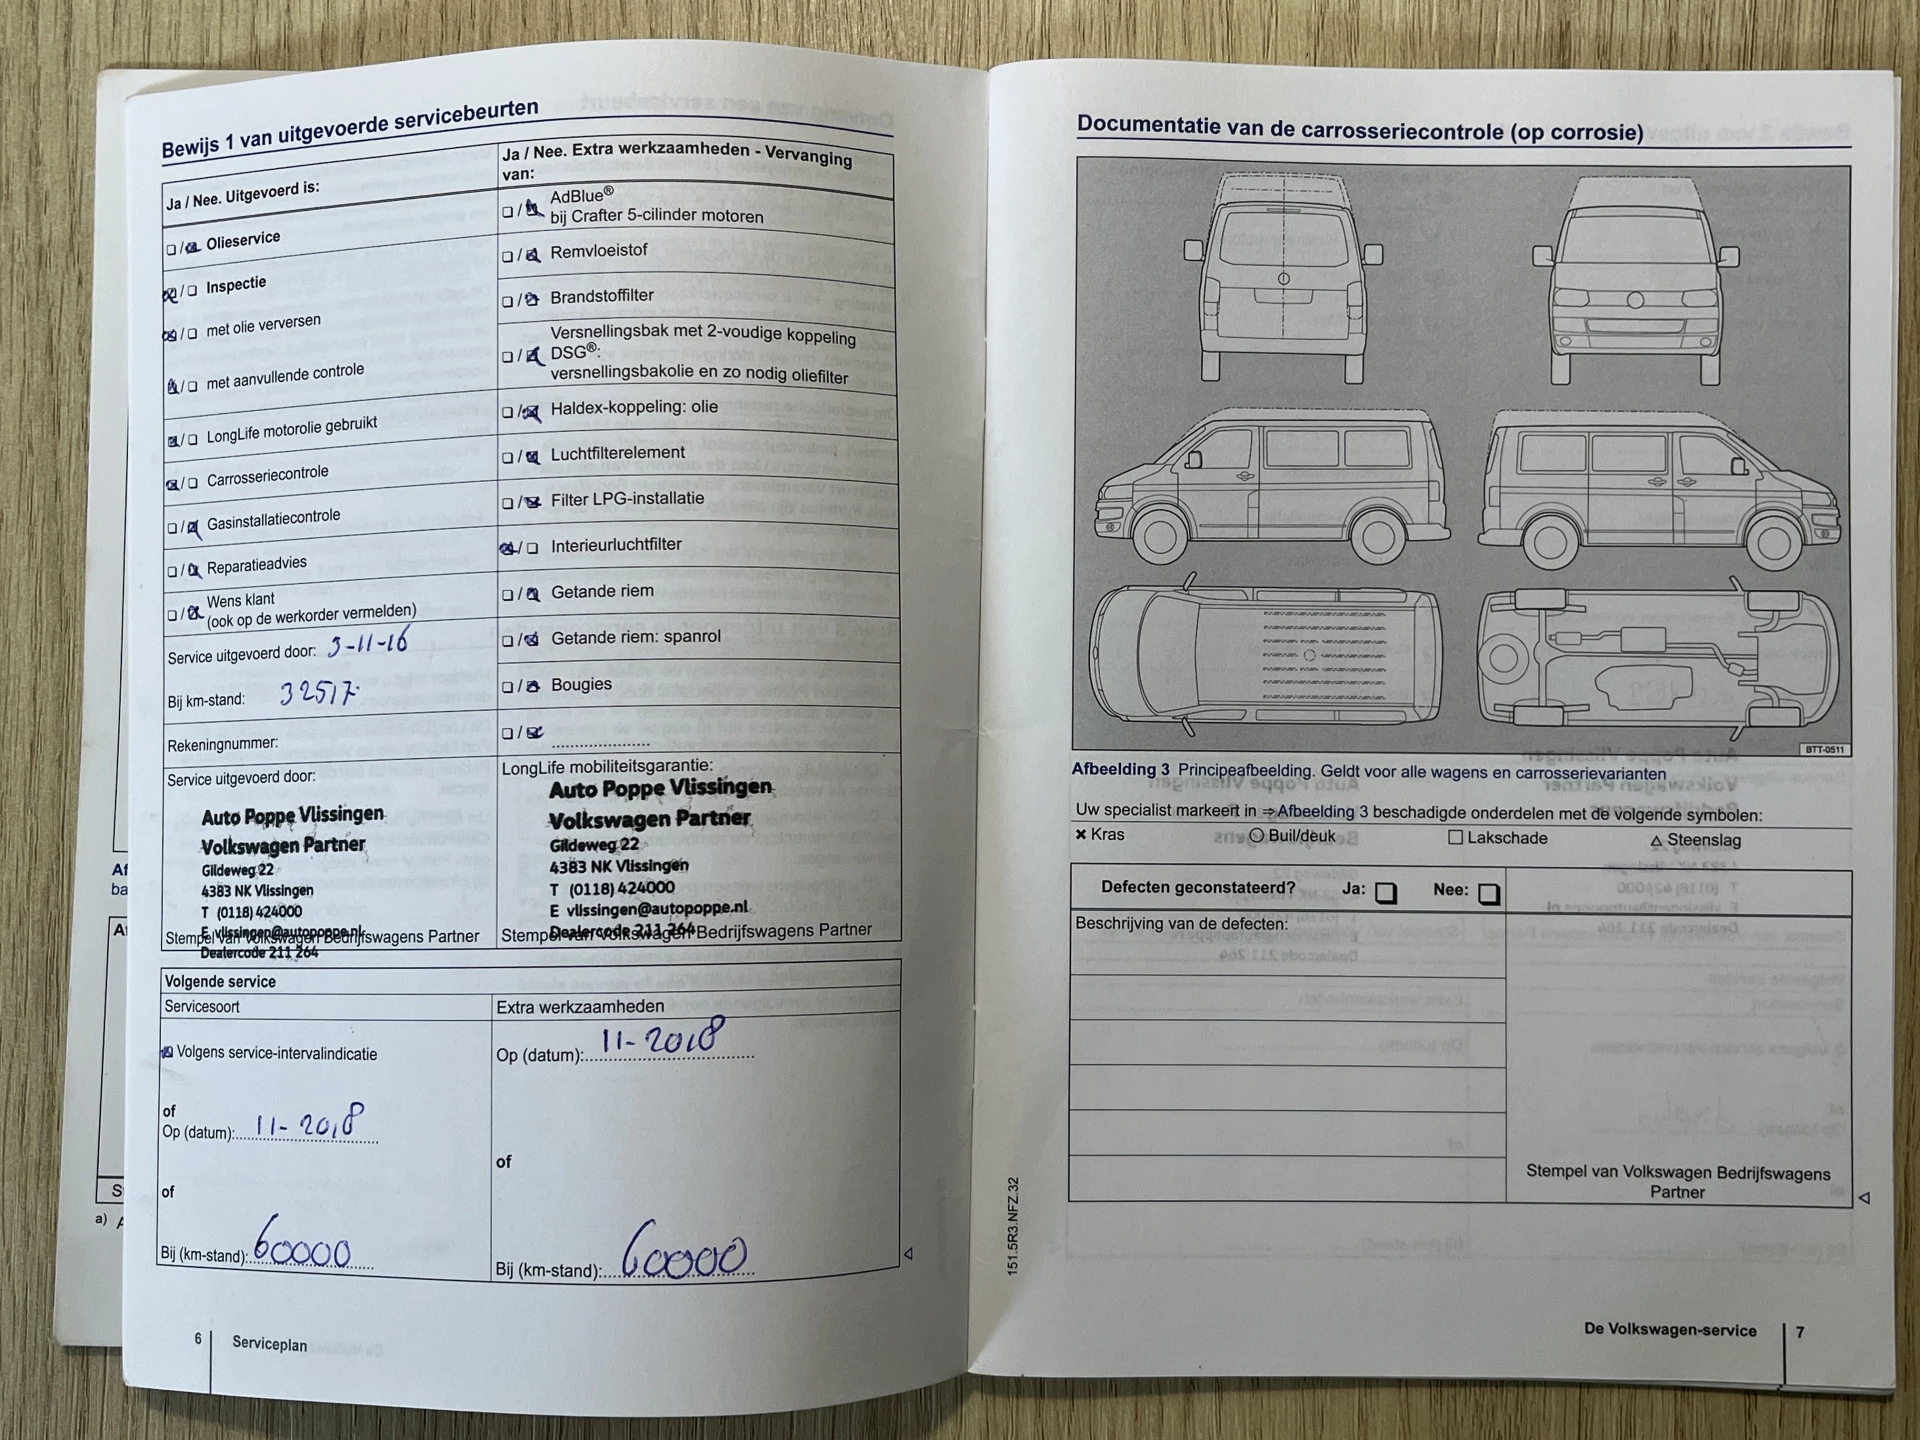 Bewijs 1 van uitgevoerde servicebeurten
Ja / Nee. Uitgevoerd is:
Olieservice
Inspectie
met olie verversen
met aanvullende controle
LongLife motorolie gebruikt
Carrosseriecontrole
Gasinstallatiecontrole
Reparatieadvies
Wens klant
(ook op de werkorder vermelden)
Service uitgevoerd door: 3-11-16
Bij km-stand: 32517
Rekeningnummer:
Service uitgevoerd door:
Auto Poppe Vlissingen
Volkswagen Partner
Gildeweg 22
4383 NK Vlissingen
T (0118) 424000
E vlissingen@autopoppe.nl
Stempel van Volkswagen Bedrijfswagens Partner
Dealercode 211 264
Ja / Nee. Extra werkzaamheden - Vervanging
van:
AdBlue®
bij Crafter 5-cilinder motoren
Remvloeistof
Brandstoffilter
Versnellingsbak met 2-voudige koppeling
DSG®:
versnellingsbakolie en zo nodig oliefilter
Haldex-koppeling: olie
Luchtfilterelement
Filter LPG-installatie
Interieurluchtfilter
Getande riem
Getande riem: spanrol
Bougies
LongLife mobiliteitsgarantie:
Auto Poppe Vlissingen
Volkswagen Partner
Gildeweg 22
4383 NK Vlissingen
T (0118) 424000
E vlissingen@autopoppe.nl
Dealercode 211 264
Stempel van Volkswagen Bedrijfswagens Partner
Volgende service
Servicesoort
Volgens service-intervalindicatie
of
Op (datum): 11-2018
of
Bij (km-stand): 60000
Extra werkzaamheden
Op (datum): 11-2018
of
Bij (km-stand): 60000
6 Serviceplan
Documentatie van de carrosseriecontrole (op corrosie)
BTT-0511
Afbeelding 3 Principeafbeelding. Geldt voor alle wagens en carrosserievarianten
Uw specialist markeert in ⇒ Afbeelding 3 beschadigde onderdelen met de volgende symbolen:
× Kras ○ Buil/deuk □ Lakschade △ Steenslag
Defecten geconstateerd? Ja: □ Nee: □
Beschrijving van de defecten:
Stempel van Volkswagen Bedrijfswagens
Partner
151.5R3.NFZ.32
De Volkswagen-service 7